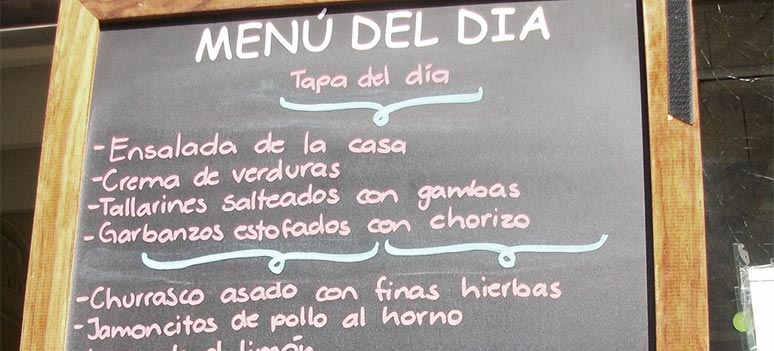 MENÚ DEL DIA
Tapa del día
-Ensalada de la casa
-Crema de verduras
-Tallarines salteados con gambas
-Garbanzos estofados con chorizo
-Churrasco asado con finas hierbas
-Jamoncitos de pollo al horno
limón